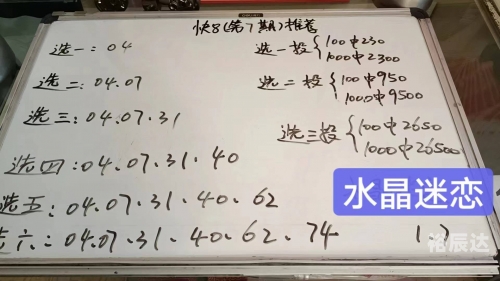 快8(第7期)推荐
选一:04
选一投{100中230
1000中2300
选二:04.07
选二投{100中950
1000中9500
选三:04.07.31
选三投{100中2650
1000中26500
选四:04.07.31.40
水晶迷恋
选五:04.07.31.40.62
选六:04.07.31.40.62.74
1.7
裕辰达